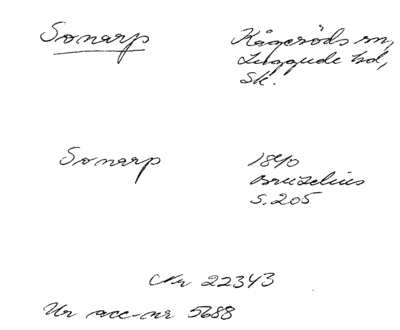 Sonarp
Kågeröds sn,
Luggude hd,
Sk.
Sonarp
1840
Bruzelius
S. 205
Nr 22343
Ur acc-nr 5688